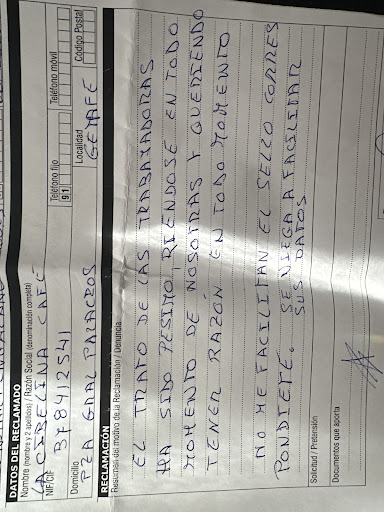 DATOS DEL RECLAMADO
Nombre (nombre y 2 apellidos) / Razón Social (denominación completa)
LA CIBELINA CAFE
NIF/CIF
B78412541
Teléfono fijo
91
Teléfono móvil
Domicilio
PZA GRAL PALACIOS
Localidad
GETAFE
Código Postal
RECLAMACIÓN
Resumen del motivo de la Reclamación / Denuncia
EL TRATO DE LAS TRABAJADORAS
HA SIDO PÉSIMO, RIENDOSE EN TODO
MOMENTO DE NOSOTRAS Y QUERIENDO
TENER RAZÓN EN TODO MOMENTO
NO ME FACILITAN EL SELLO CORRES
PONDIETE. SE NIEGA A FACILITAR
SUS DATOS
Solicitud / Pretensión
Documentos que aporta